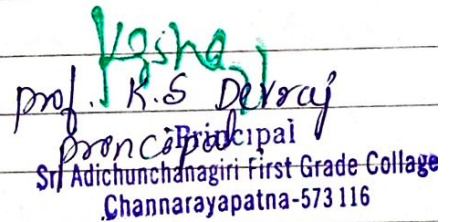 prof. K.S Devraj
proncipal
Principal
Sri Adichunchanagiri First Grade Collage
Channarayapatna-573 116